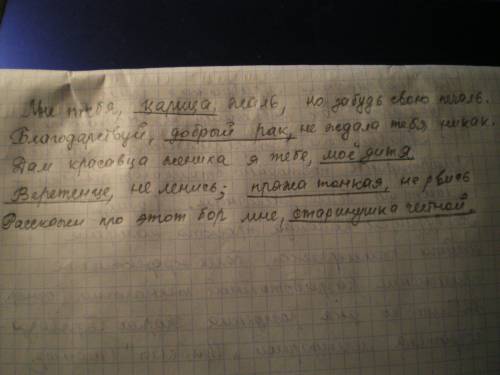 Мне тебя, капица жаль, но забудь свою печаль.
Благодарствуй, добрый рак, не ждала тебя никак.
Дам красавца жениха я тебе, моё дитя
Веретенце, не ленись; пряжа тонкая, не рвись
Расскажи про этот бор мне, старинушка честной.